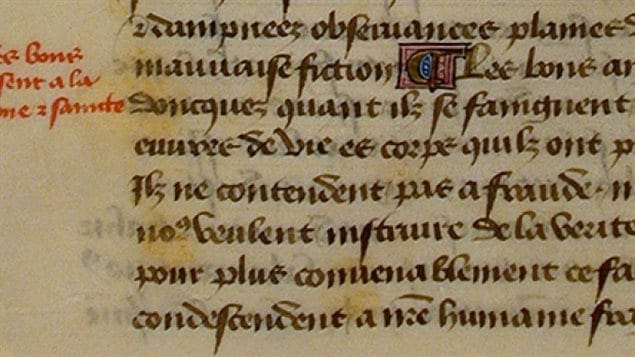 es bons
sent a la
me ⁊ saincte
⁊ dampneez obseruances plaines d
mauuaise fiction ¶ Les bons an
doncques quant ilz se faingnent
euures de vie es corps quilz ont p
Ilz ne contendent pas a fraude. m
noꝰ veulent instruire de la verite
pour plus conuenablement ce fa
condescendent a nr̄e humaine fra